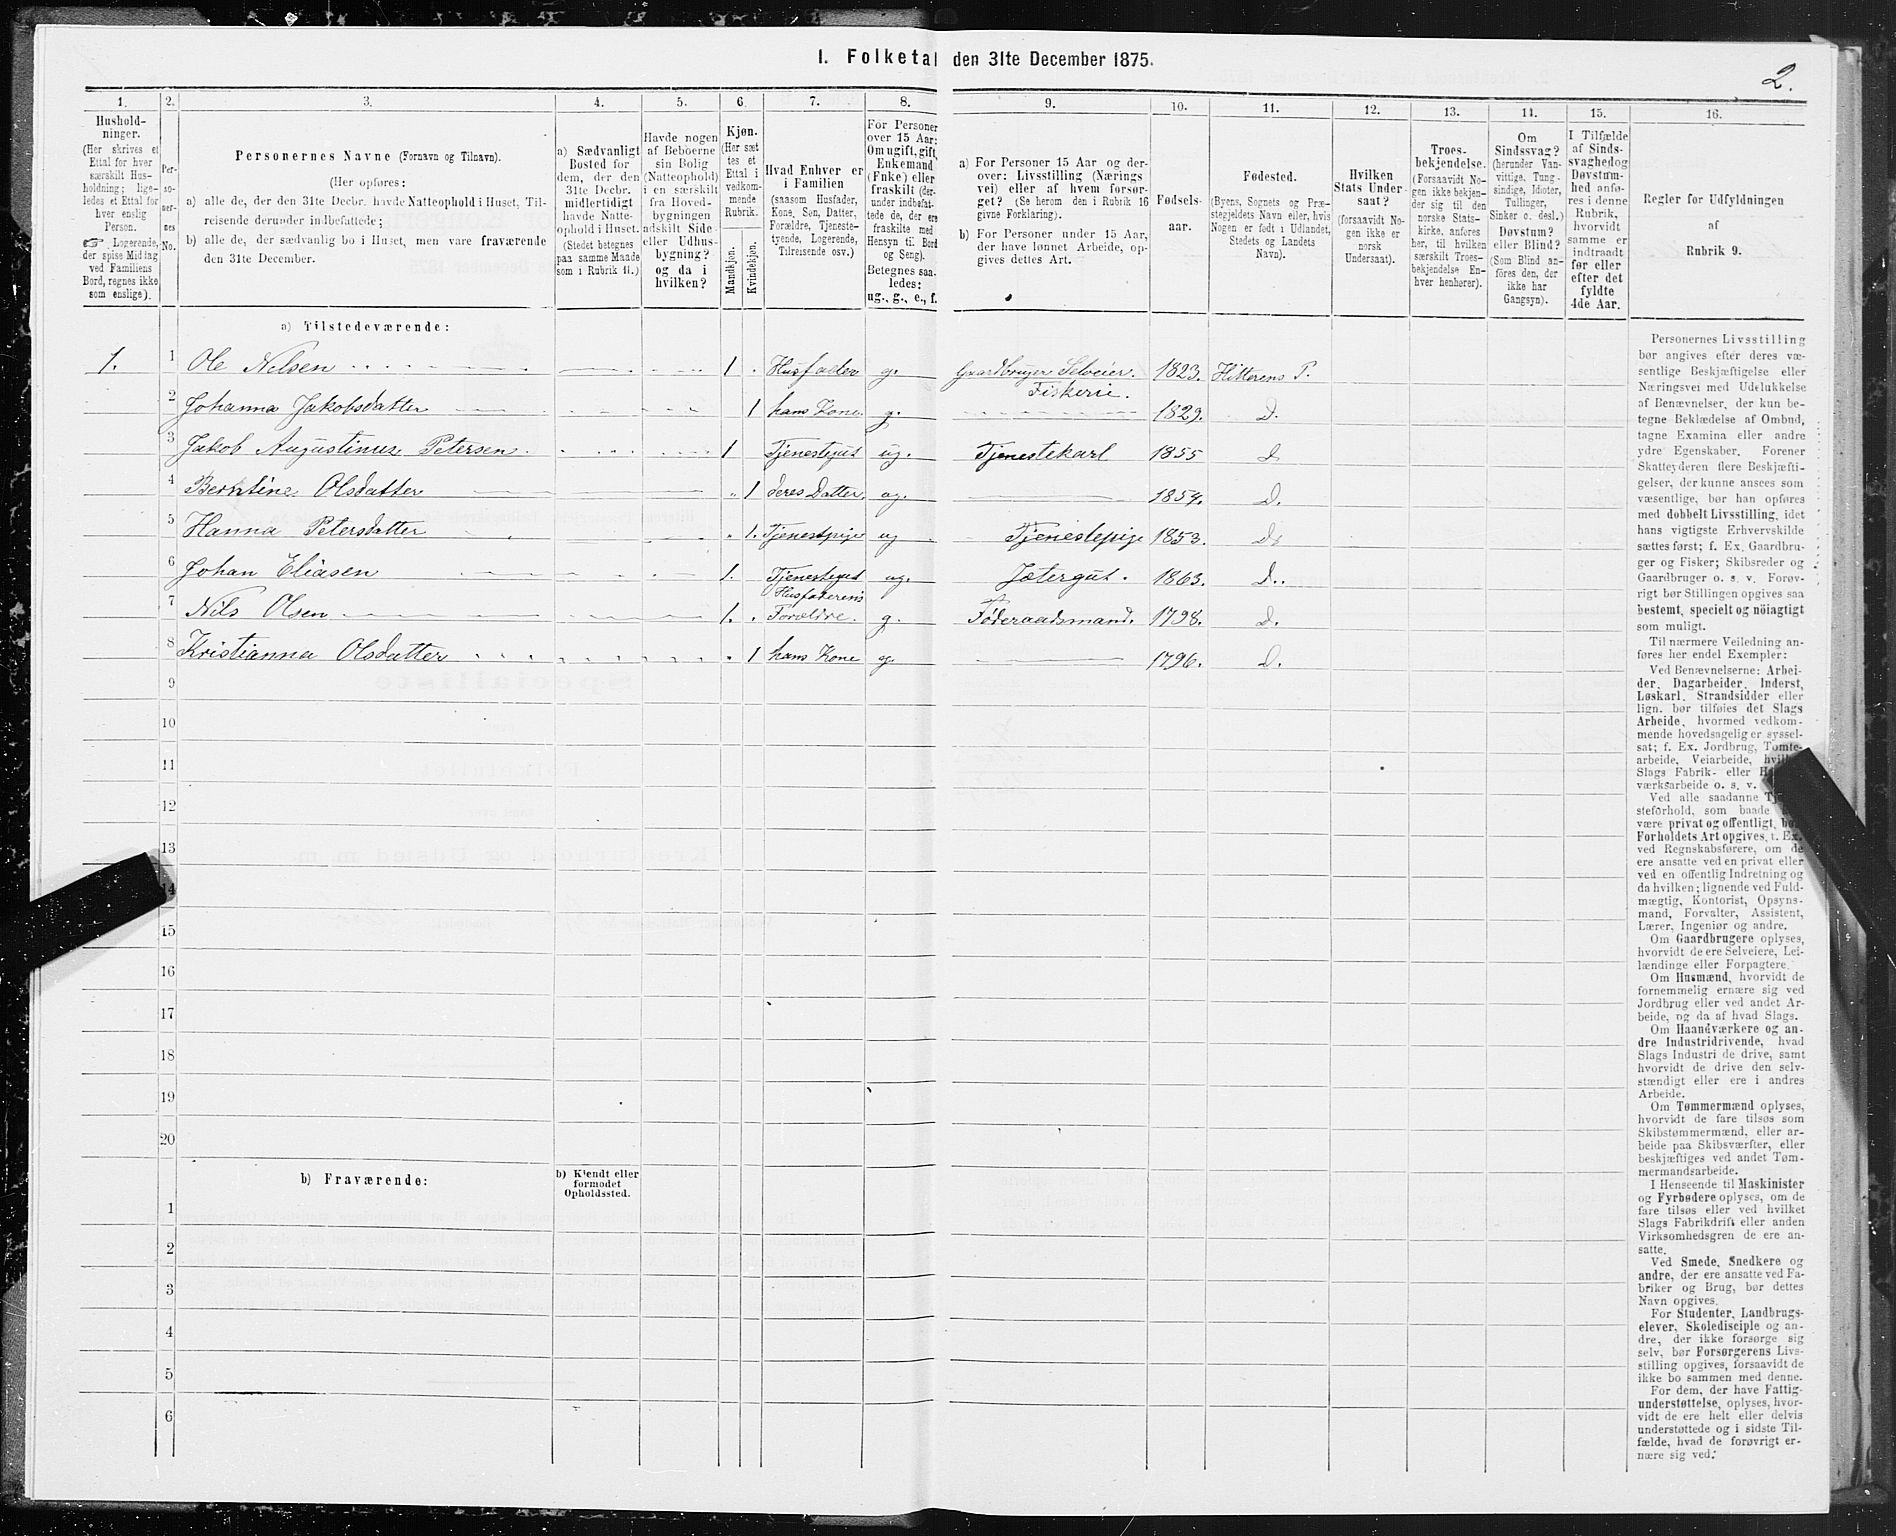 I. Folketal den 31te December 1875.
2.
1. 2. 3. 4. 5. 6. 7. 8. 9. 10. 11. 12. 13. 14. 15. 16.
Hushold-
ninger.
(Her skrives et
Ettal for hver
særskilt Hus-
holdning; lige-
ledes et Ettal for
hver enslig
Person.
☞ Logerende,
der spise Middag
ved Familiens
Bord, regnes ikke
som enslige).
Per-
so-
ner-
nes
No.
Personernes Navne (Fornavn og Tilnavn).
(Her opføres:
a) alle de, der den 31te Decbr. havde Natteophold i Huset, Til-
reisende derunder indbefattede;
b) alle de, der sædvanlig bo i Huset, men vare fraværende
den 31te December.
a) Sædvanligt
Bosted for
dem, der den
31te Decbr.
midlertidigt
havde Natte-
ophold i Huset.
(Stedet betegnes
paa samme Maade
som i Rubrik 11.)
Havde nogen
af Beboerne
sin Bolig
(Natteophold)
i en særskilt
fra Hoved-
bygningen
adskilt Side-
eller Udhus-
bygning?
og da i
hvilken?
Kjøn.
(Her sæt-
tes et
Ettal i
vedkom-
mende
Rubrik.
Mandkjøn.
Kvindekjøn.
Hvad Enhver er
i Familien
(saasom Husfader,
Kone, Søn, Datter,
Forældre, Tjeneste-
tyende, Logerende,
Tilreisende osv.)
For Personer
over 15 Aar:
Om ugift, gift,
Enkemand
(Enke) eller
fraskilt (der-
under indbefat-
tede de, der ere
fraskilte med
Hensyn til Bord
og Seng).
Betegnes saa-
ledes:
ug., g., e., f.
a) For Personer 15 Aar og der-
over: Livsstilling (Nærings-
vei) eller af hvem forsør-
get? (Se herom den i Rubrik 16
givne Forklaring).
b) For Personer under 15 Aar,
der have lønnet Arbeide, op-
gives dettes Art.
Fødsels-
aar.
Fødested.
(Byens, Sognets og Præ-
stegjeldets Navn eller, hvis
Nogen er født i Udlandet,
Stedets og Landets
Navn).
Hvilken
Stats Under-
saat?
(forsaavidt No-
gen ikke er
norsk
Undersaat).
Troes-
bekjendelse.
(Forsaavidt No-
gen ikke bekjen-
der sig til den
norske Stats-
kirke, anføres
her, til hvilken
særskilt Troes-
bekjendelse En-
hver henhører).
Om
Sindssvag?
(herunder Van-
vittige, Tung-
sindige, Idioter,
Tullinger,
Sinker o. desl.)
Døvstum?
eller Blind?
(Som Blind an-
føres den, der
ikke har
Gangsyn).
I Tilfælde
af Sinds-
svaghed og
Døvstum-
hed anfø-
res i denne
Rubrik,
hvorvidt
samme er
indtraadt
før eller
efter det
fyldte
4de Aar.
Regler for Udfyldningen
af
Rubrik 9.
a) Tilstedeværende:
1. 1 Ole Nelsen 1 Husfader g. Gaardbruger Selveier. Fiskerie. 1823. Hitterens P.
2 Johanna Jakobsdatter 1 hans Kone. g. 1829. D.
3 Jakob Augustinus Petersen. 1 Tjenestegut ug. Tjenestekarl 1855 D
4 Berntine Olsdatter 1 deres Datter. ug. 1854. D.
5 Hanna Petersdatter 1. Tjenestpige ug Tjenestepige 1853. D.
6 Johan Eliasen 1. Tjenestegut ug. Jætergut. 1863. D.
7 Nils Olsen 1. Husfaderens Forældre. g. Føderaadsmand. 1798. D.
8 Kristianna Olsdatter 1 hans Kone g. 1796. D.
9
10
11
12
13
14
15
16
17
18
19
20
b) Fraværende:
b) Kjendt eller
formodet
Opholdssted.
1
2
3
4
5
6
Personernes Livsstilling
bør angives efter deres væ-
sentlige Beskjæftigelse eller
Næringsvei med Udelukkelse
af Benævnelser, der kun be-
tegne Beklædelse af Ombud,
tagne Examina eller andre
ydre Egenskaber. Forener
Skatteyderen flere Beskjæfti-
gelser, der kunne ansees som
væsentlige, bør han opføres
med dobbelt Livsstilling, idet
hans vigtigste Erhvervskilde
sættes først; f. Ex. Gaardbru-
ger og Fisker; Skibsreder og
Gaardbruger o. s. v. Forøv-
rigt bør Stillingen opgives saa
bestemt, specielt og nöiagtigt
som muligt.
Til nærmere Veiledning an-
føres her endel Exempler:
Ved Benævnelserne: Arbei-
der, Dagarbeider, Inderst,
Løskarl, Strandsidder eller
lign. bør tilføies det Slags
Arbeide, hvormed vedkom-
mende hovedsagelig er syssel-
sat; f. Ex. Jordbrug, Tomte-
arbeide, Veiarbeide,
Slags Fabrik- eller
værksarbeide o. s. v.
Ved alle saadanne
steforhold, som baade
være privat og offentligt,
Forholdets Art opgives, f. Ex.
ved Regnskabsførere, om de
ere ansatte ved en privat eller
ved en offentlig Indretning og
da hvilken; lignende ved Fuld-
mægtig, Kontorist, Opsyns-
mand, Forvalter, Assistent,
Lærer, Ingeniør og andre.
Om Gaardbrugere oplyses,
hvorvidt de ere Selveiere, Lei-
lændinge eller Forpagtere.
Om Husmænd, hvorvidt de
fornemmelig ernære sig ved
Jordbrug eller ved andet Ar-
beide, og da af hvad Slags.
Om Haandværkere og an-
dre Industridrivende, hvad
Slags Industri de drive, samt
hvorvidt de drive den selv-
stændigt eller ere i andres
Arbeide.
Om Tømmermænd oplyses,
hvorvidt de fare tilsøs som
Skibstømmermænd, eller ar-
beide paa Skibsværfter, eller
beskjæftiges ved andet Tøm-
mermandsarbeide.
I Henseende til Maskinister
og Fyrbødere oplyses, om de
fare tilsøs eller ved hvilket
Slags Fabrikdrift eller anden
Virksomhedsgren de ere an-
satte.
Ved Smede, Snedkere og
andre, der ere ansatte ved Fa-
briker og Brug, bør dettes
Navn opgives.
For Studenter, Landbrugs-
elever, Skoledisciple og an-
dre, der ikke forsørge sig
selv, bør Forsørgerens Livs-
stilling opgives, forsaavidt de
ikke bo sammen med denne.
For dem, der have Fattig-
understøttelse, oplyses, hvor-
vidt de ere helt eller delvis
understøttede og i sidste Til-
fælde, hvad de forøvrigt er-
nære sig ved.